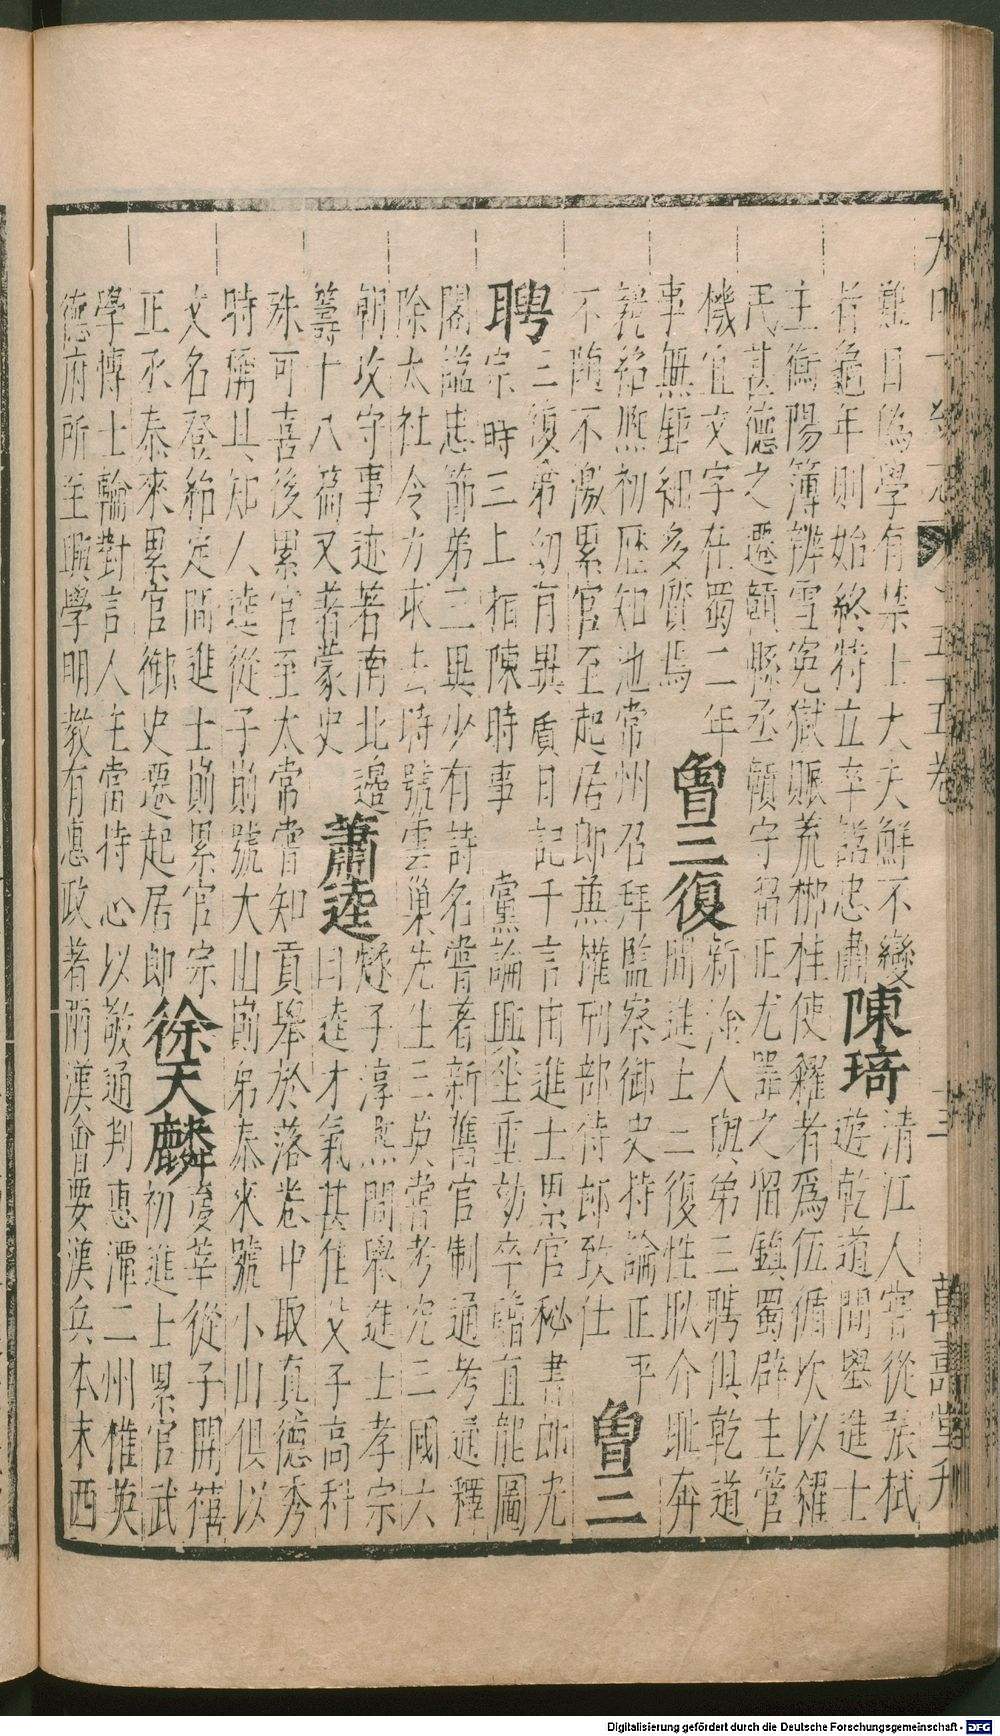 大明一統志 五十五卷 十三 萬壽堂刊
難曰偽學有禁士大夫鮮不變
者龜年則始終特立卒諡忠肅
陳琦
清江人嘗從張栻
遊乾道間舉進士
主衡陽簿辨雪冤獄賑荒郴桂使糴者爲伍循坎以糴
民甚德之遷贛縣丞贛守留正尤器之留鎮蜀辟主管
機宜文字在蜀二年
事無鉅細多質焉
曾三復
新淦人與弟三聘俱乾道
間進士三復性耿介恥奔
競紹熙初歷知池常州召拜監察御史持論正平
不隨不激累官至起居郎兼權刑部侍郎致仕
曾三
聘
三復弟幼有異質日記千言由進士累官秘書郎光
宗時三上相陳時事 黨論興坐重劾卒贈直龍圖
閣諡忠節弟三異少有詩名嘗著新舊官制通考通釋
除太社令力求去時號雲巢先生三英嘗考究三國六
朝攻守事迹若南北邊
籌十八篇又著蒙史
蕭逵
燧子淳熙間舉進士孝宗
曰逵才氣甚佳父子高科
殊可喜後累官至太常嘗知貢舉於落卷中取真德秀
時稱其知人逵從子崱號大山崱弟泰來號小山俱以
文名登紹定間進士崱累官宗
正丞泰來累官御史遷起居郎
徐天麟
夢莘從子開禧
初進士累官武
學博士輪對言人主當持心以敬通判惠潭二州惟英
德府所至興學明教有惠政著兩漢會要漢兵本末西
Digitalisierung gefördert durch die Deutsche Forschungsgemeinschaft - DFG